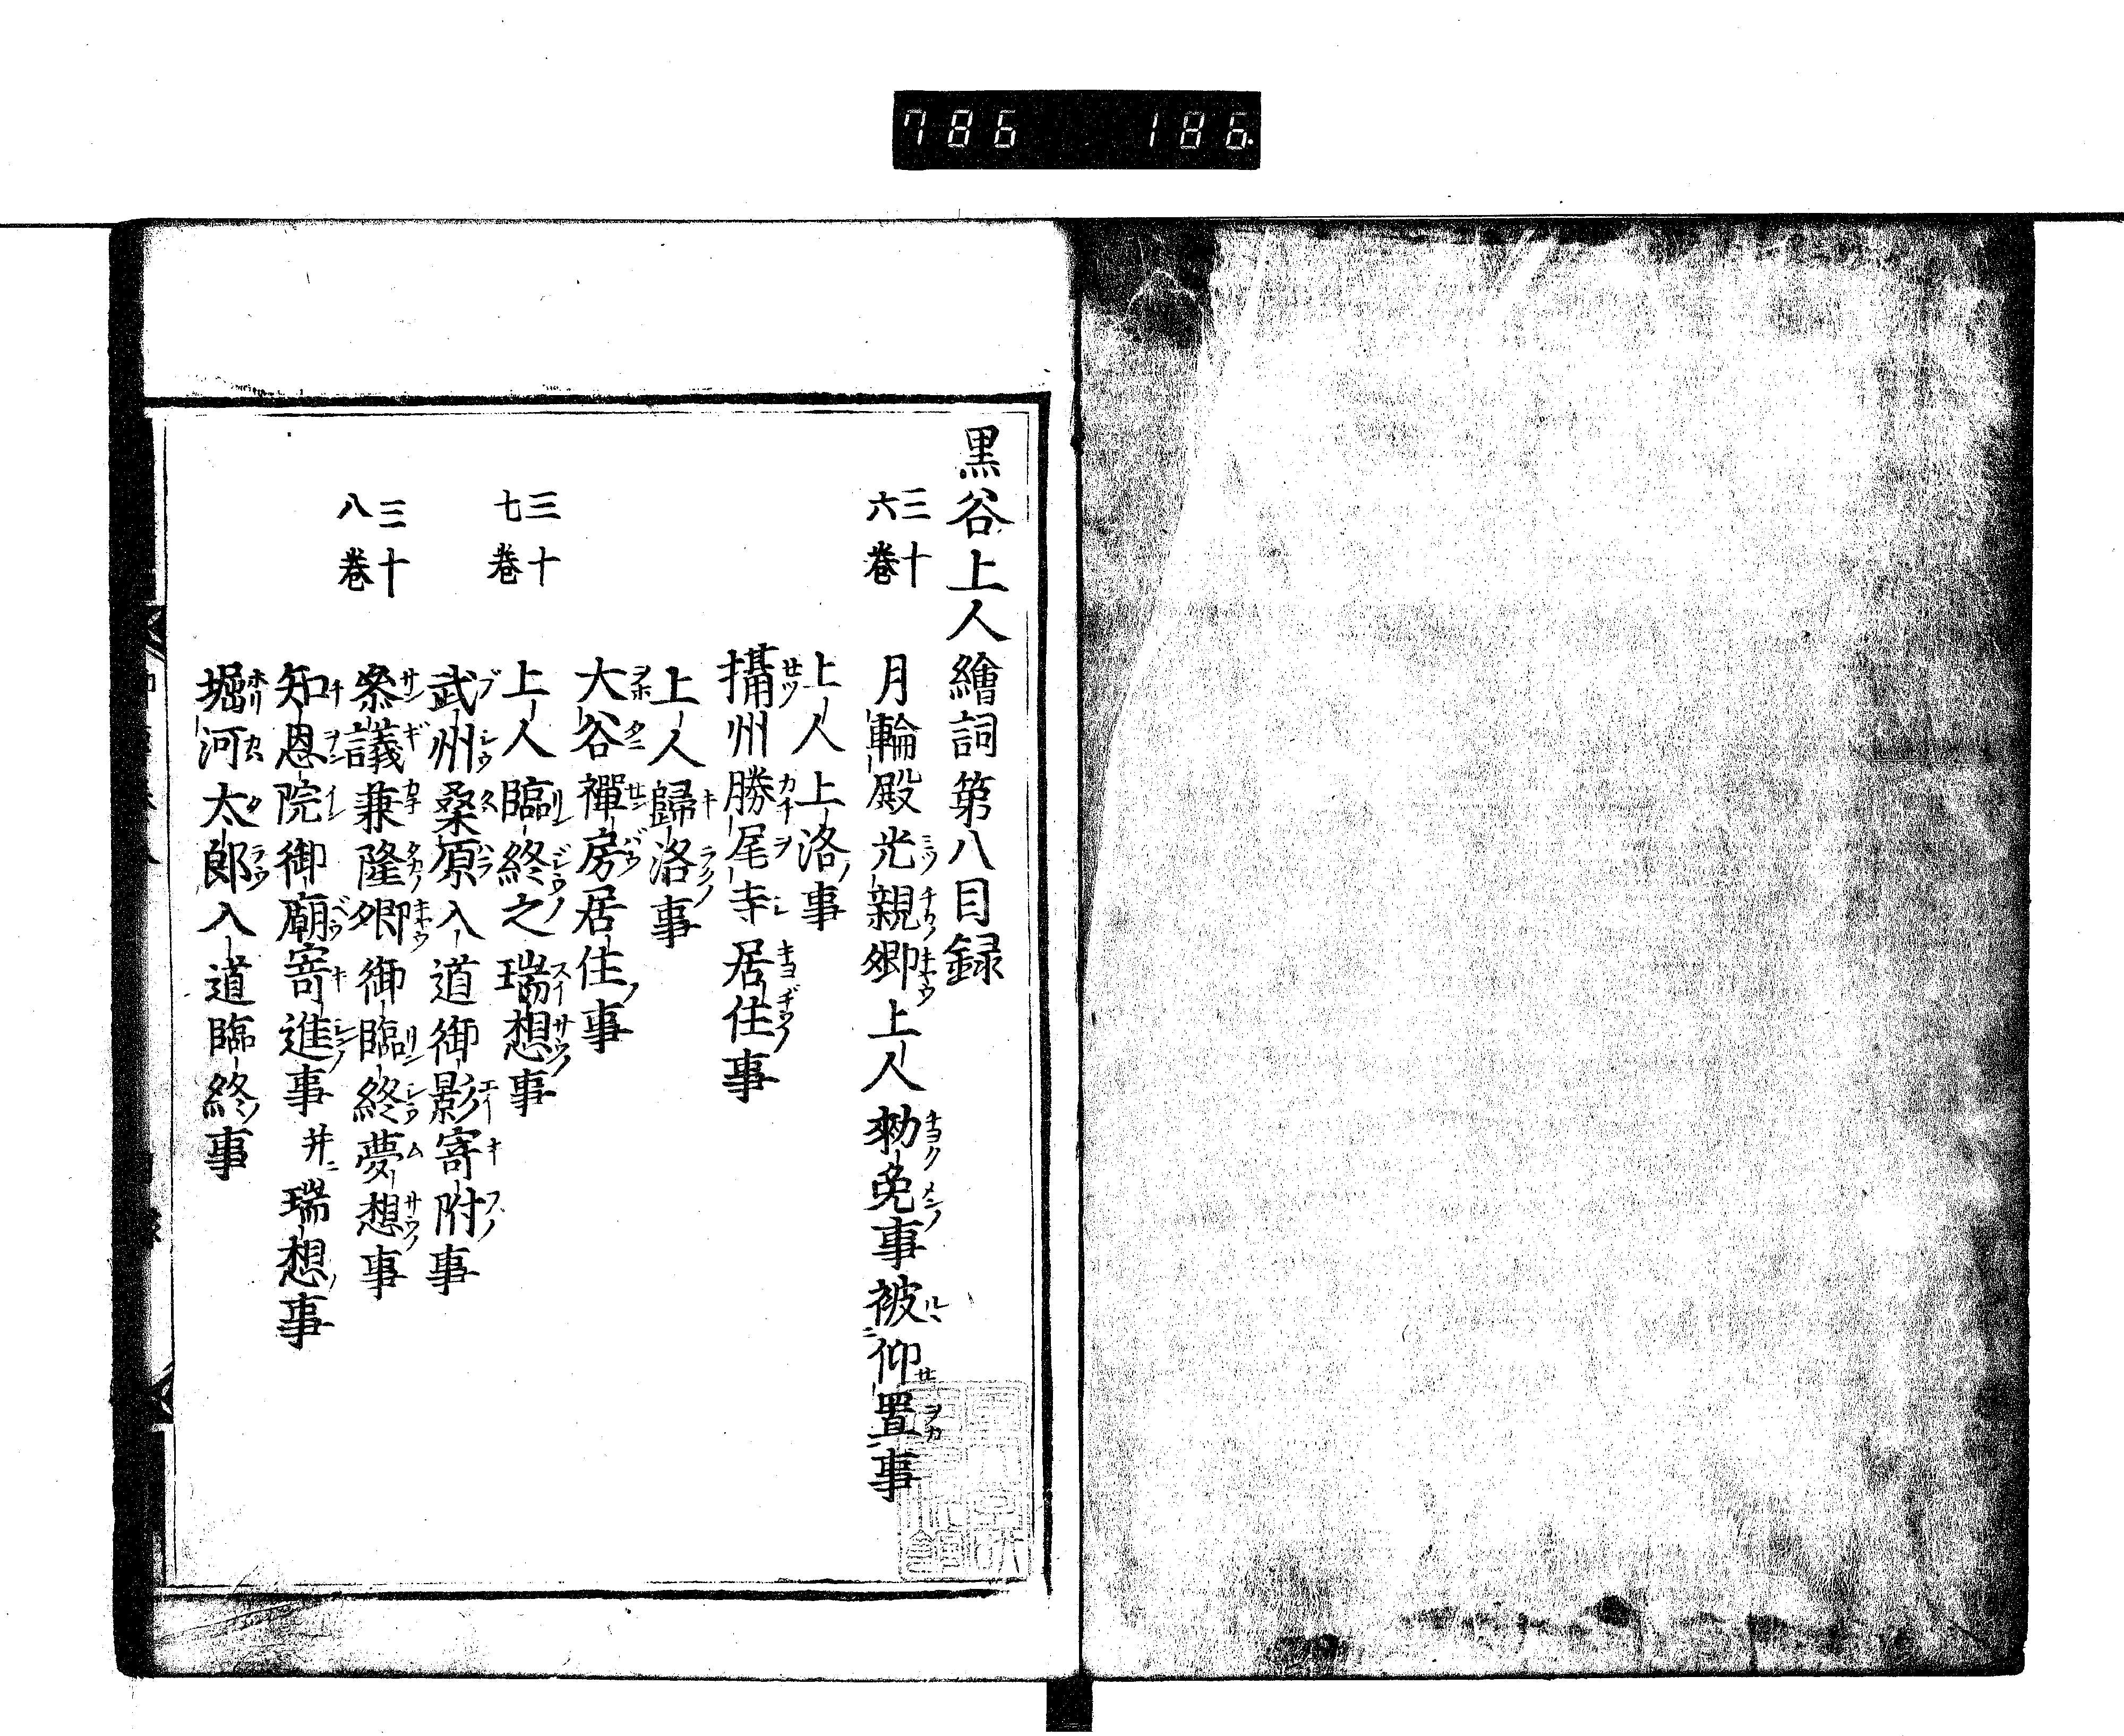 786 186
黒谷上人繪詞第八目録
三十六巻
月輪殿光親卿上人勅免事被仰置事
上人上洛事
攝州勝尾寺居住事
上人歸洛事
大谷禪房居住事
三十七巻
上人臨終之瑞想事
武州桑原入道御影寄附事
三十八巻
参議兼隆卿御臨終夢想事
知恩院御廟寄進事并瑞想事
堀河太郎入道臨終事